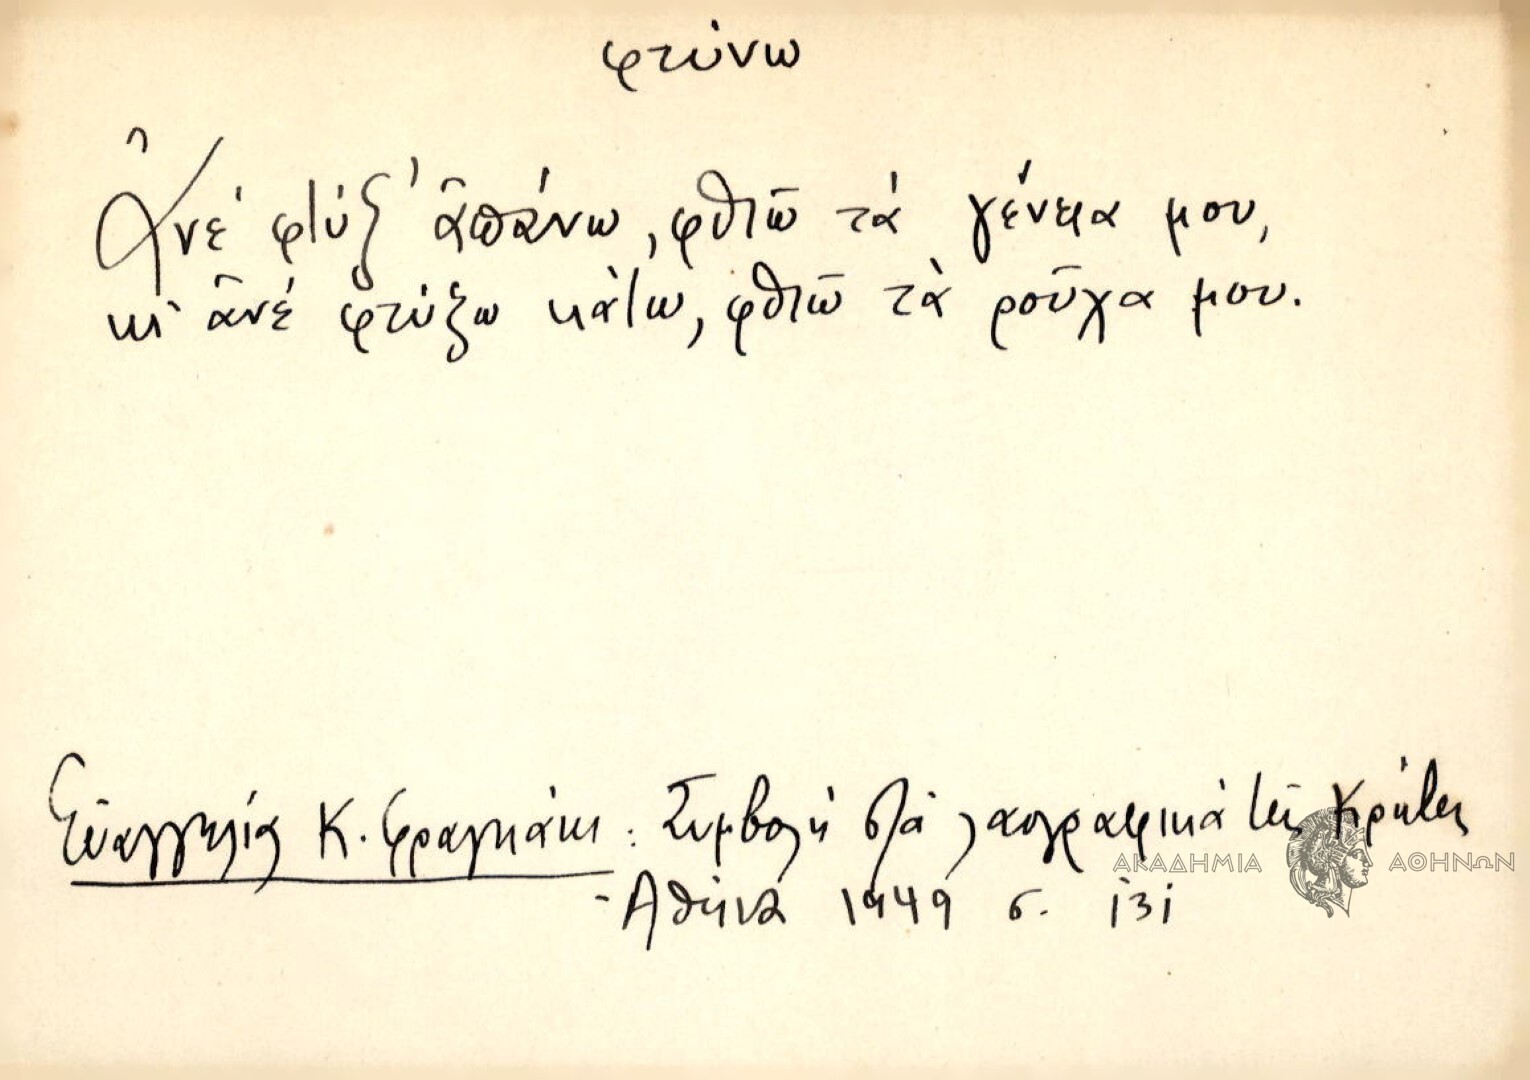 φτύνω
Ἀνέ φτύξ' ἀπάνω, φθιῶ τά γένεια μου,
κι ἀνέ φτύξω κάτω, φθιῶ τὰ ροῦχα μου.
Εὐαγγελίας Κ. Φραγκάκι: Συμβολή στά λαογραφικά τῆς Κρήτης
- Ἀθήνα 1949 σ. 131
ΑΚΑΔΗΜΙΑ ΑΘΗΝΩΝ